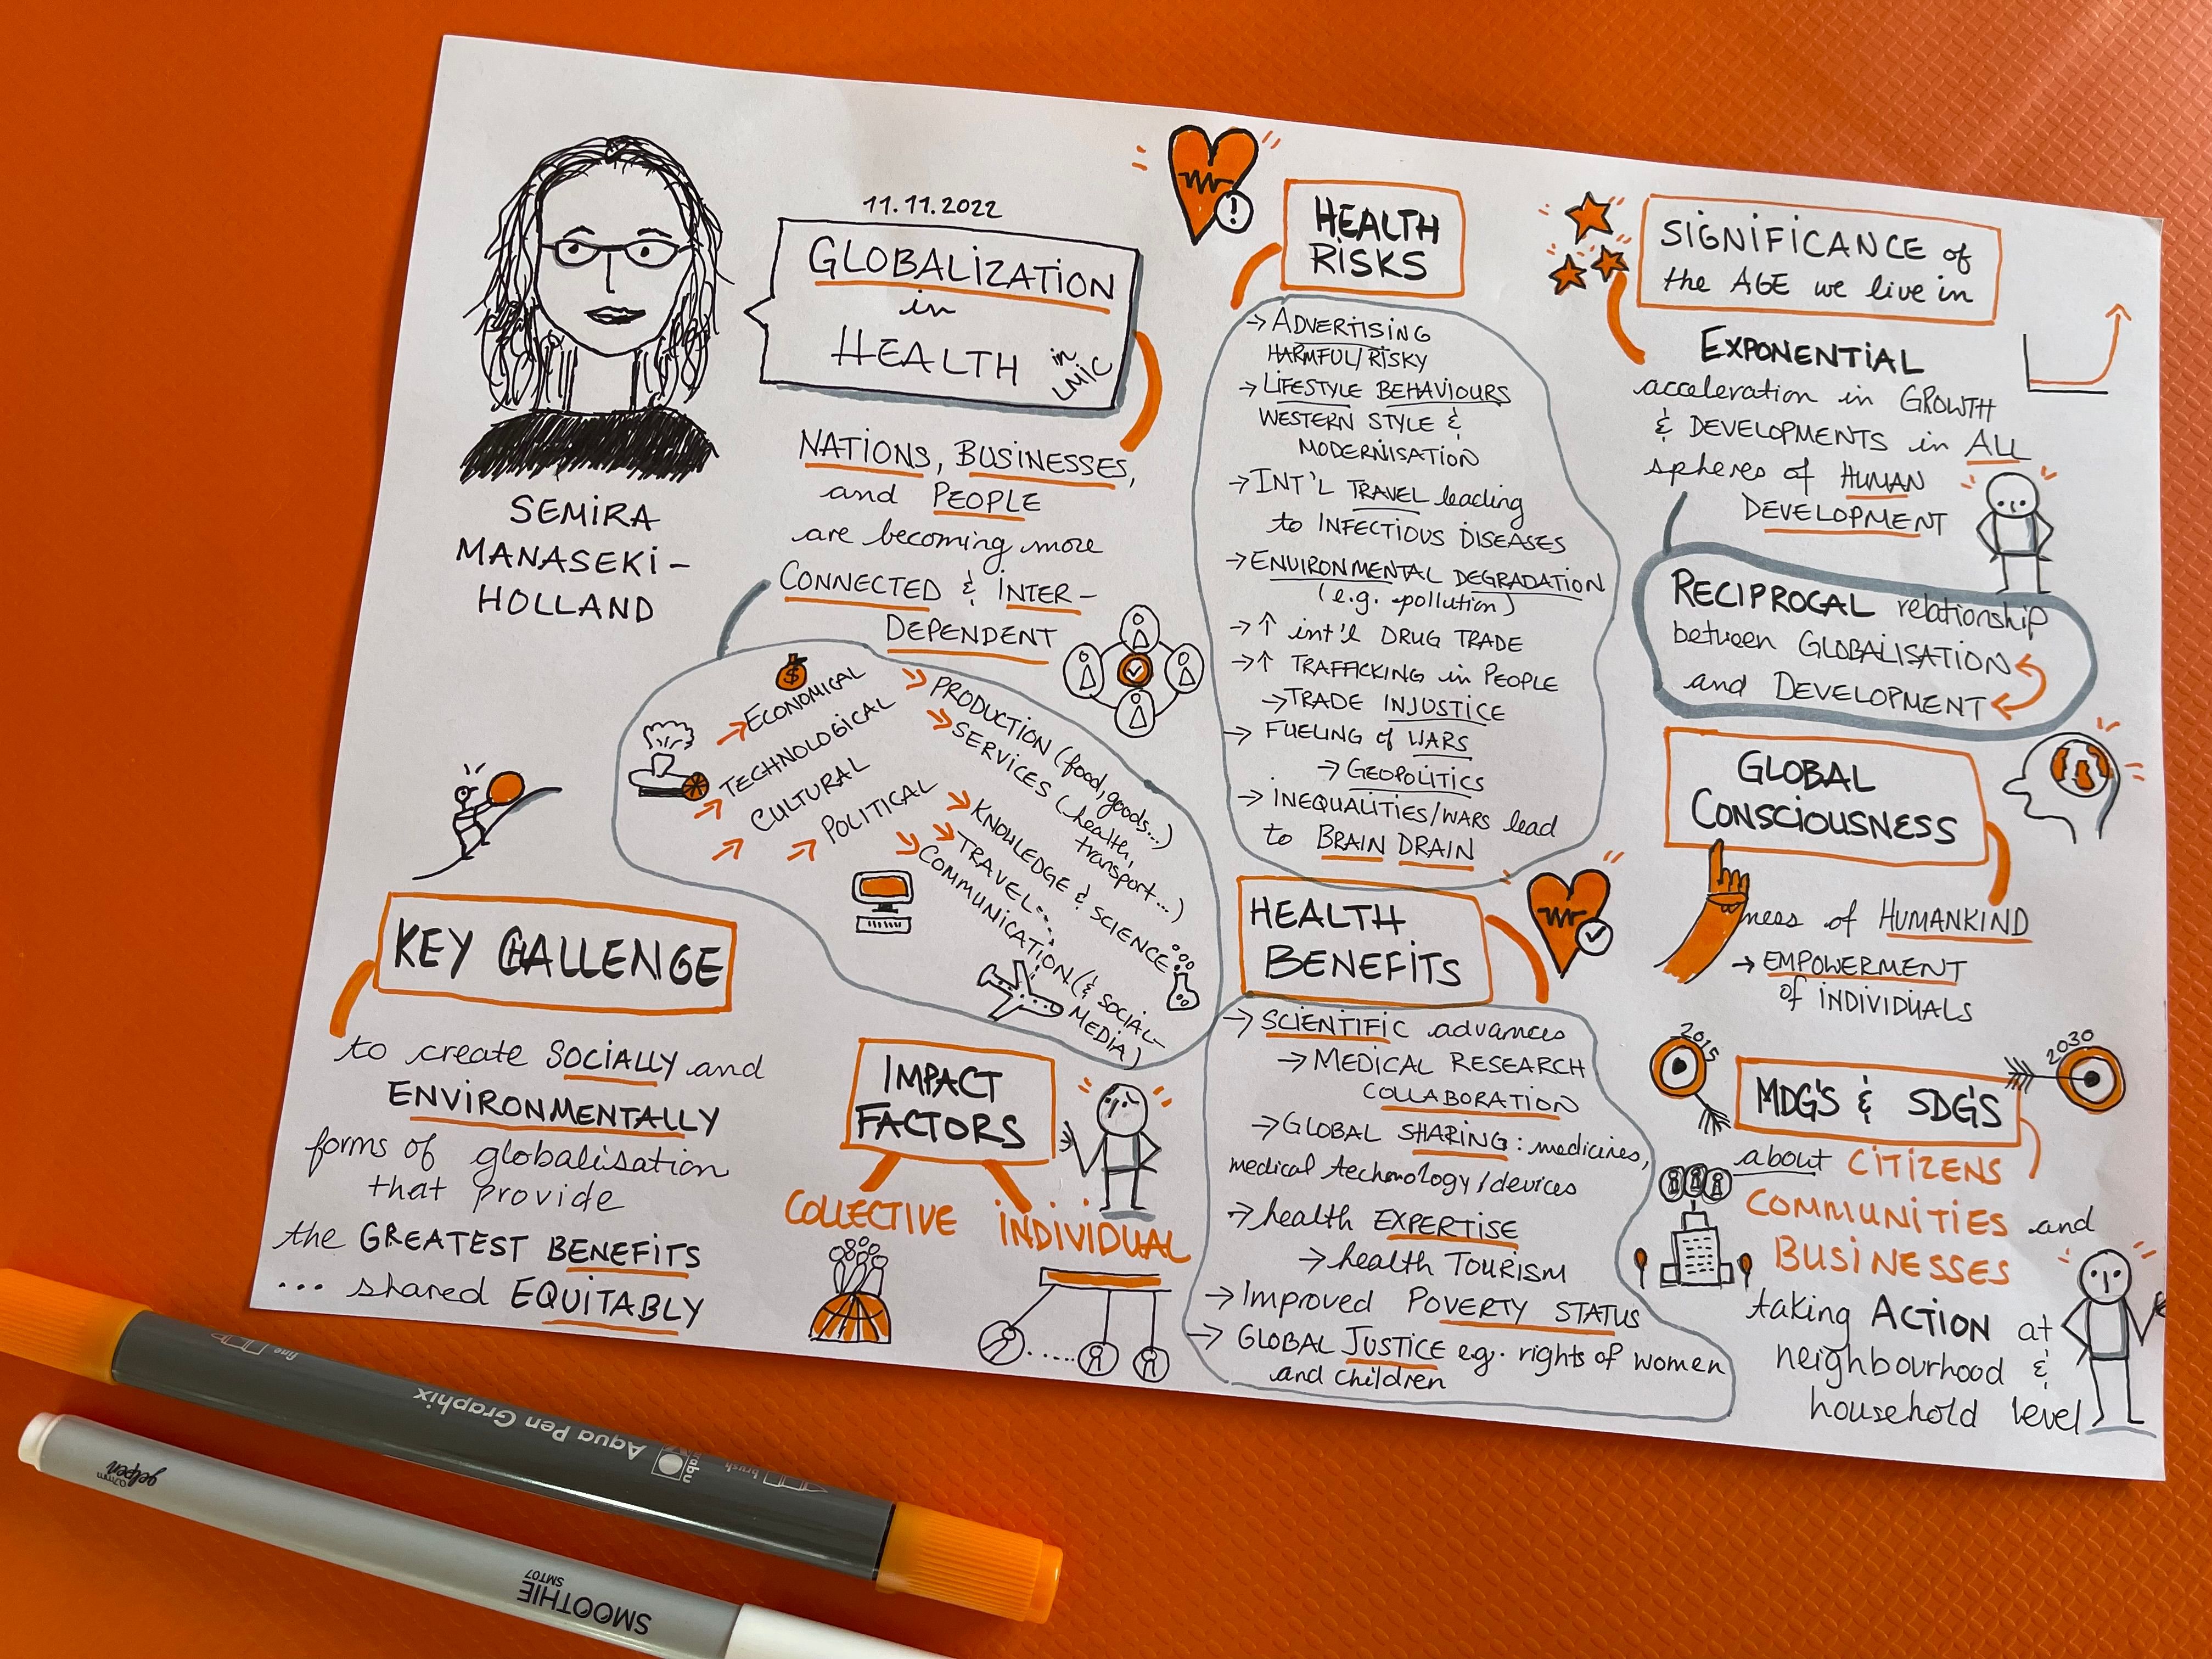 11.11.2022
GLOBALIZATION
in
HEALTH
in
LMIC
SEMIRA
MANASEKI-
HOLLAND
NATIONS, BUSINESSES,
and PEOPLE
are becoming more
CONNECTED & INTER-
DEPENDENT
$
ECONOMICAL
TECHNOLOGICAL
CULTURAL
POLITICAL
PRODUCTION (food, goods...)
SERVICES (health,
transport...)
KNOWLEDGE & SCIENCE
TRAVEL...
COMMUNICATION (& SOCIAL-
MEDIA)
KEY CHALLENGE
to create SOCIALLY and
ENVIRONMENTALLY
forms of globalisation
that provide
the GREATEST BENEFITS
... shared EQUITABLY
IMPACT
FACTORS
COLLECTIVE
INDIVIDUAL
HEALTH
RISKS
→ ADVERTISING
HARMFUL/RISKY
→ LIFESTYLE BEHAVIOURS
WESTERN STYLE &
MODERNISATION
→ INT'L TRAVEL leading
to INFECTIOUS DISEASES
→ ENVIRONMENTAL DEGRADATION
(e.g. pollution)
→ ↑ int'l DRUG TRADE
→ ↑ TRAFFICKING in PEOPLE
→ TRADE INJUSTICE
→ FUELING of WARS
→ GEOPOLITICS
→ INEQUALITIES/WARS lead
to BRAIN DRAIN
HEALTH
BENEFITS
→ SCIENTIFIC advances
→ MEDICAL RESEARCH
COLLABORATION
→ GLOBAL SHARING: medicines,
medical technology/devices
→ health EXPERTISE
→ health TOURISM
→ Improved POVERTY STATUS
→ GLOBAL JUSTICE e.g. rights of women
and children
SIGNIFICANCE of
the AGE we live in
EXPONENTIAL
acceleration in GROWTH
& DEVELOPMENTS in ALL
spheres of HUMAN
DEVELOPMENT
RECIPROCAL relationship
between GLOBALISATION
and DEVELOPMENT
GLOBAL
CONSCIOUSNESS
ness of HUMANKIND
→ EMPOWERMENT
of INDIVIDUALS
2015
2030
MDG'S & SDG'S
about CITIZENS
COMMUNITIES and
BUSINESSES
taking ACTION at
neighbourhood &
household level
fine
Aqua Pen Graphix
brush
0.7mm
gelpen
SMOOTHIE
SMT07